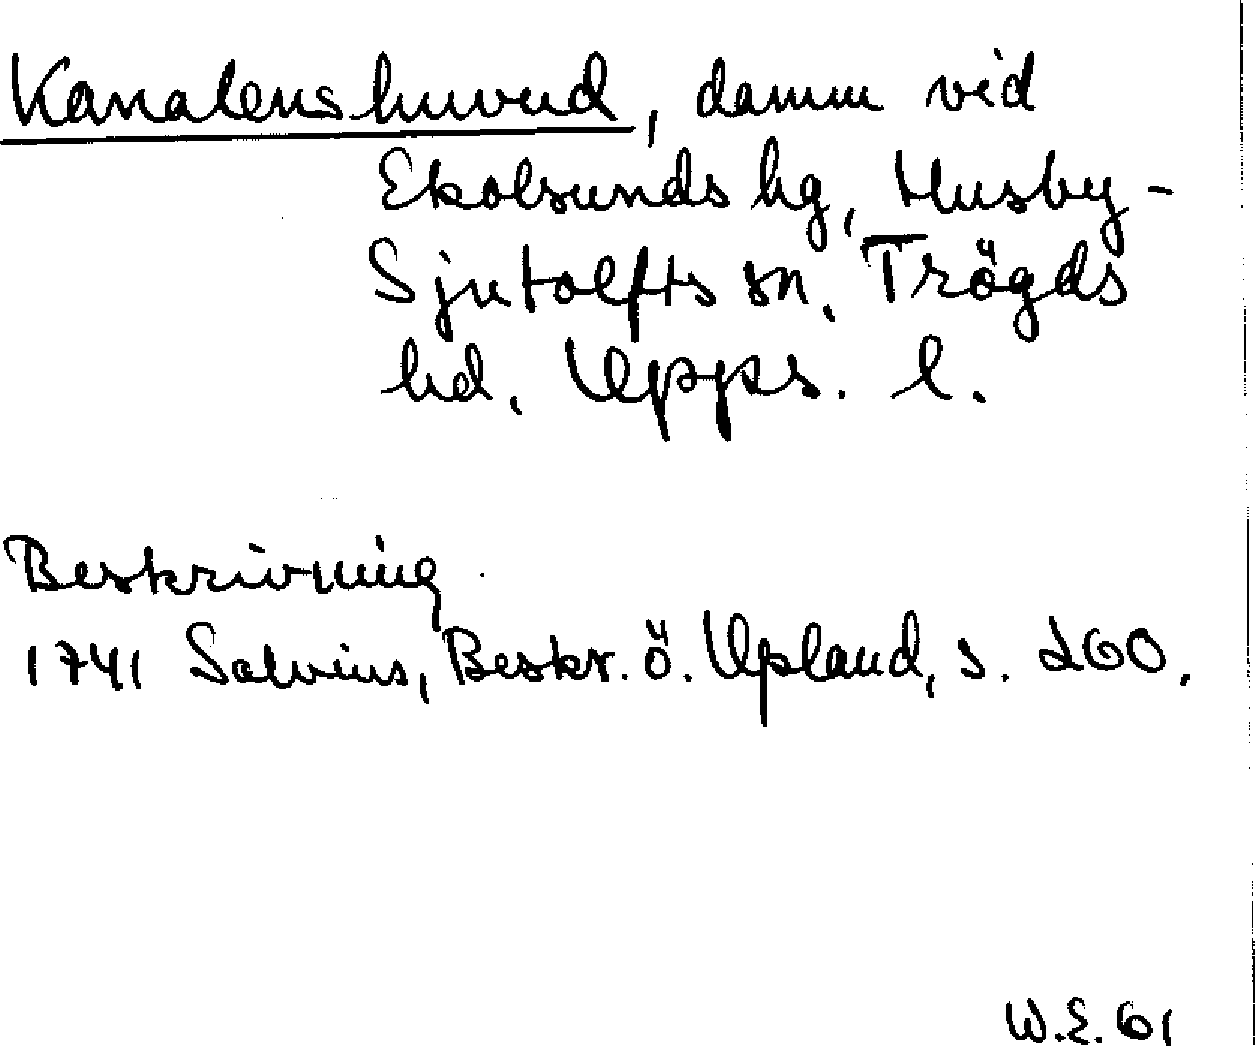 Kanalenshuvud, damm vid
Ekolsunds hg, Husby-
Sjutolfts sn, Trögds
hd, Upps. l.
Beskrivning
1741 Salvius, Beskr. ö. Upland, s. 260.
W.E. 61